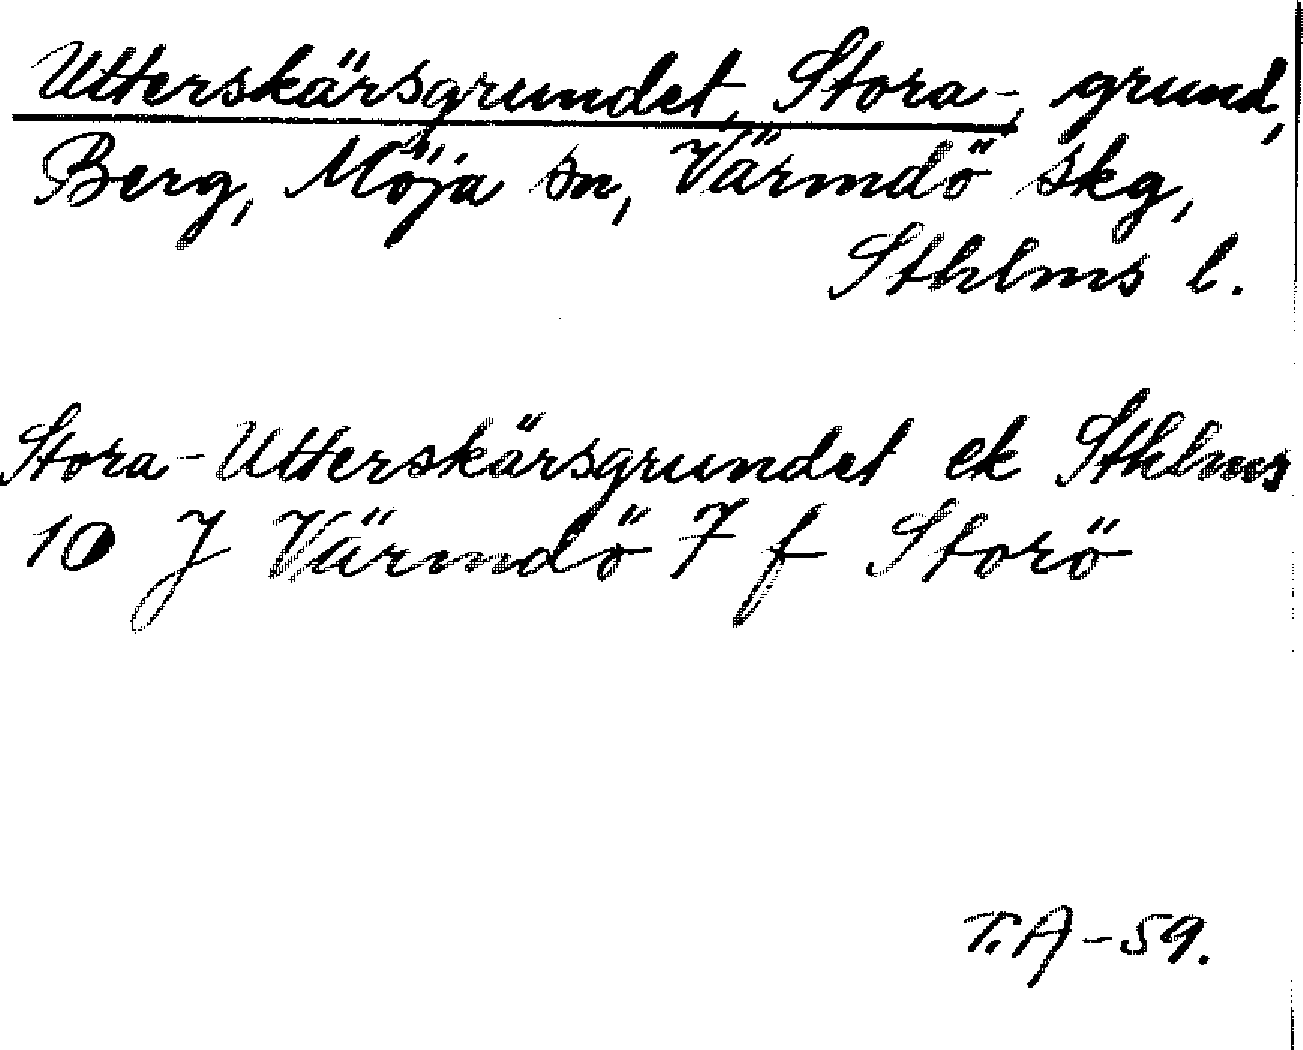 Utterskärsgrundet, Stora-, grund,
Berg, Möja sn, Värmdö skg,
Sthlms l.
Stora-Utterskärsgrundet ek Sthlms
10 J Värmdö 7 f Storö
T.A-59.